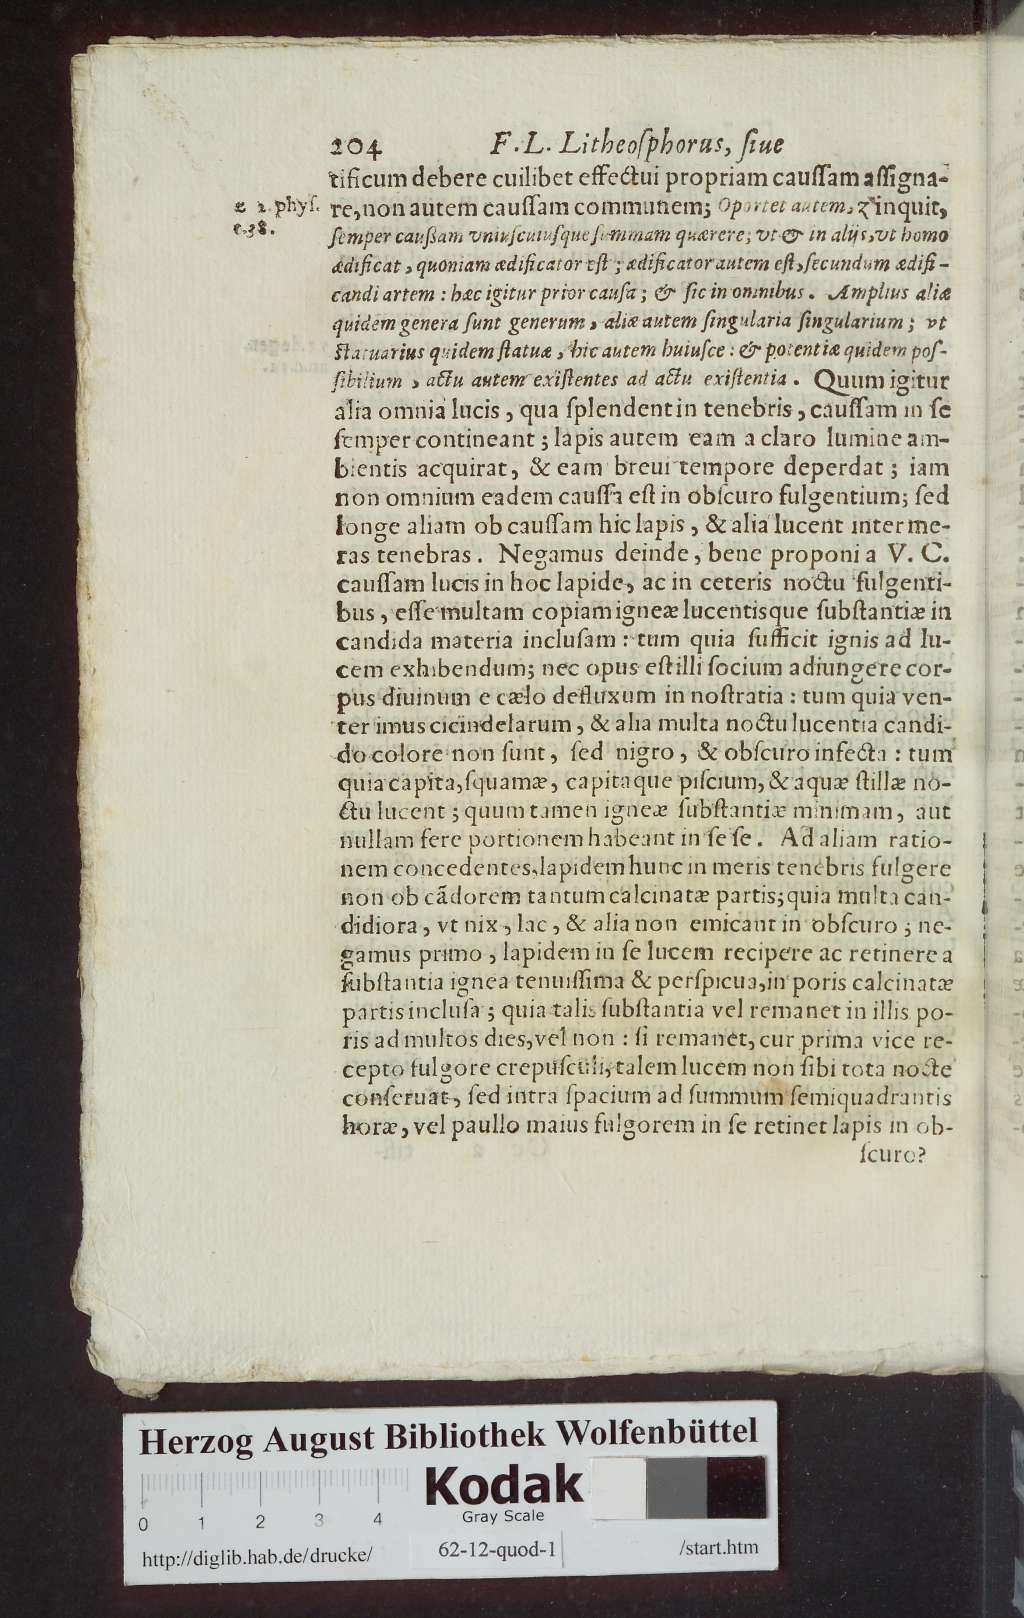 204 F. L. Litheoſphorus, ſiue
tificum debere cuilibet effectui propriam cauſſam aſſigna-
re, non autem cauſſam communem; Oportet autem, z inquit,
z 2. phyſ.
c. 38.
ſemper cauſſam vniuſcuiuſque ſummam quærere; vt & in alijs, vt homo
ædificat, quoniam ædificator eſt; ædificator autem eſt, ſecundum ædifi-
candi artem: hæc igitur prior cauſa; & ſic in omnibus. Amplius aliæ
quidem genera ſunt generum, aliæ autem ſingularia ſingularium; vt
ſtatuarius quidem ſtatuæ, hic autem huiuſce: & potentiæ quidem poſ-
ſibilium, actu autem exiſtentes ad actu exiſtentia. Quum igitur
alia omnia lucis, qua ſplendent in tenebris, cauſſam in ſe
ſemper contineant; lapis autem eam a claro lumine am-
bientis acquirat, & eam breui tempore deperdat; iam
non omnium eadem cauſſa eſt in obſcuro fulgentium; ſed
longe aliam ob cauſſam hic lapis, & alia lucent inter me-
ras tenebras. Negamus deinde, bene proponi a V. C.
cauſſam lucis in hoc lapide, ac in ceteris noctu fulgenti-
bus, eſſe multam copiam igneæ lucentisque ſubſtantiæ in
candida materia incluſam: tum quia ſufficit ignis ad lu-
cem exhibendum; nec opus eſt illi ſocium adiungere cor-
pus diuinum e cælo defluxum in noſtratia: tum quia ven-
ter imus cicindelarum, & alia multa noctu lucentia candi-
do colore non ſunt, ſed nigro, & obſcuro infecta: tum
quia capita, ſquamæ, capitaque piſcium, & aquæ ſtillæ no-
ctu lucent; quum tamen igneæ ſubſtantiæ minimam, aut
nullam fere portionem habeant in ſe ſe. Ad aliam ratio-
nem concedentes, lapidem hunc in meris tenebris fulgere
non ob cãdorem tantum calcinatæ partis; quia multa can-
didiora, vt nix, lac, & alia non emicant in obſcuro; ne-
gamus primo, lapidem in ſe lucem recipere ac retinere a
ſubſtantia ignea tenuiſſima & perſpicua, in poris calcinatæ
partis incluſa; quia talis ſubſtantia vel remanet in illis po-
ris ad multos dies, vel non: ſi remanet, cur prima vice re-
cepto fulgore crepuſculi, talem lucem non ſibi tota nocte
conſeruat, ſed intra ſpacium ad ſummum ſemiquadrantis
horæ, vel paullo maius fulgorem in ſe retinet lapis in ob-
ſcuro?
Herzog August Bibliothek Wolfenbüttel
Kodak
Gray Scale
0 1 2 3 4
http://diglib.hab.de/drucke/ 62-12-quod-1 /start.htm